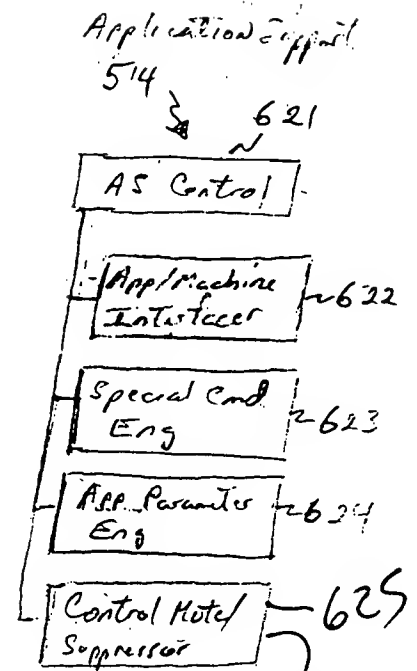 Application Support
514
621
AS Control
App/Machine
Interfacer
622
Special Cmd
Eng
623
App. Parameter
Eng
624
Control Hotel
Suppressor
625